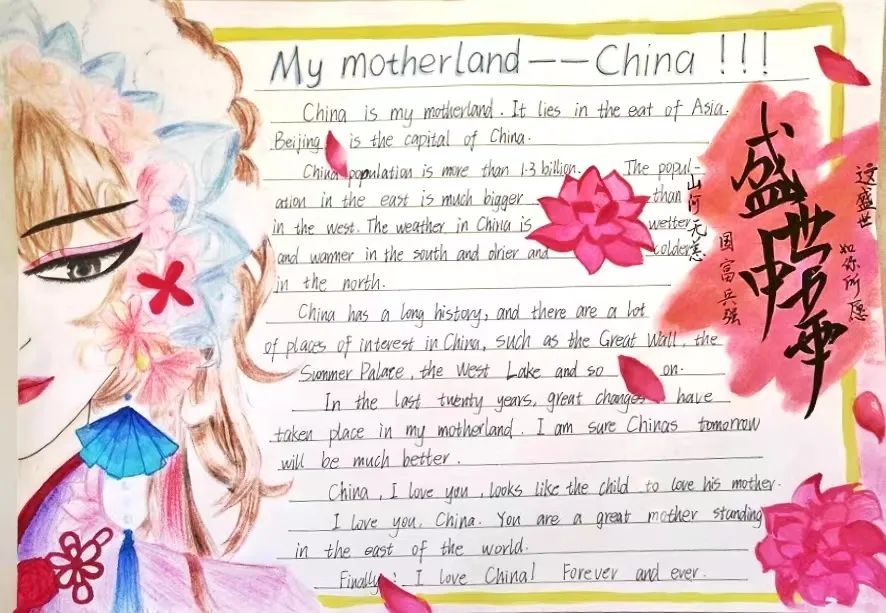 My motherland——China !!!
China is my motherland. It lies in the eat of Asia.
Beijing is the capital of China.
China population is more than 1.3 billion. The popul-
ation in the east is much bigger than
in the west. The weather in China is wetter
and warmer in the south and drier and colder
in the north.
China has a long history, and there are a lot
of places of interest in China, such as the Great Wall, the
Summer Palace, the West Lake and so on.
In the last twenty years, great changes have
taken place in my motherland. I am sure Chinas tomorrow
will be much better.
China, I love you, looks like the child to love his mother.
I love you, China. You are a great mother standing
in the east of the world.
Finally: I love China! Forever and ever.
盛世中华
山河无恙
国富兵强
这盛世
如你所愿